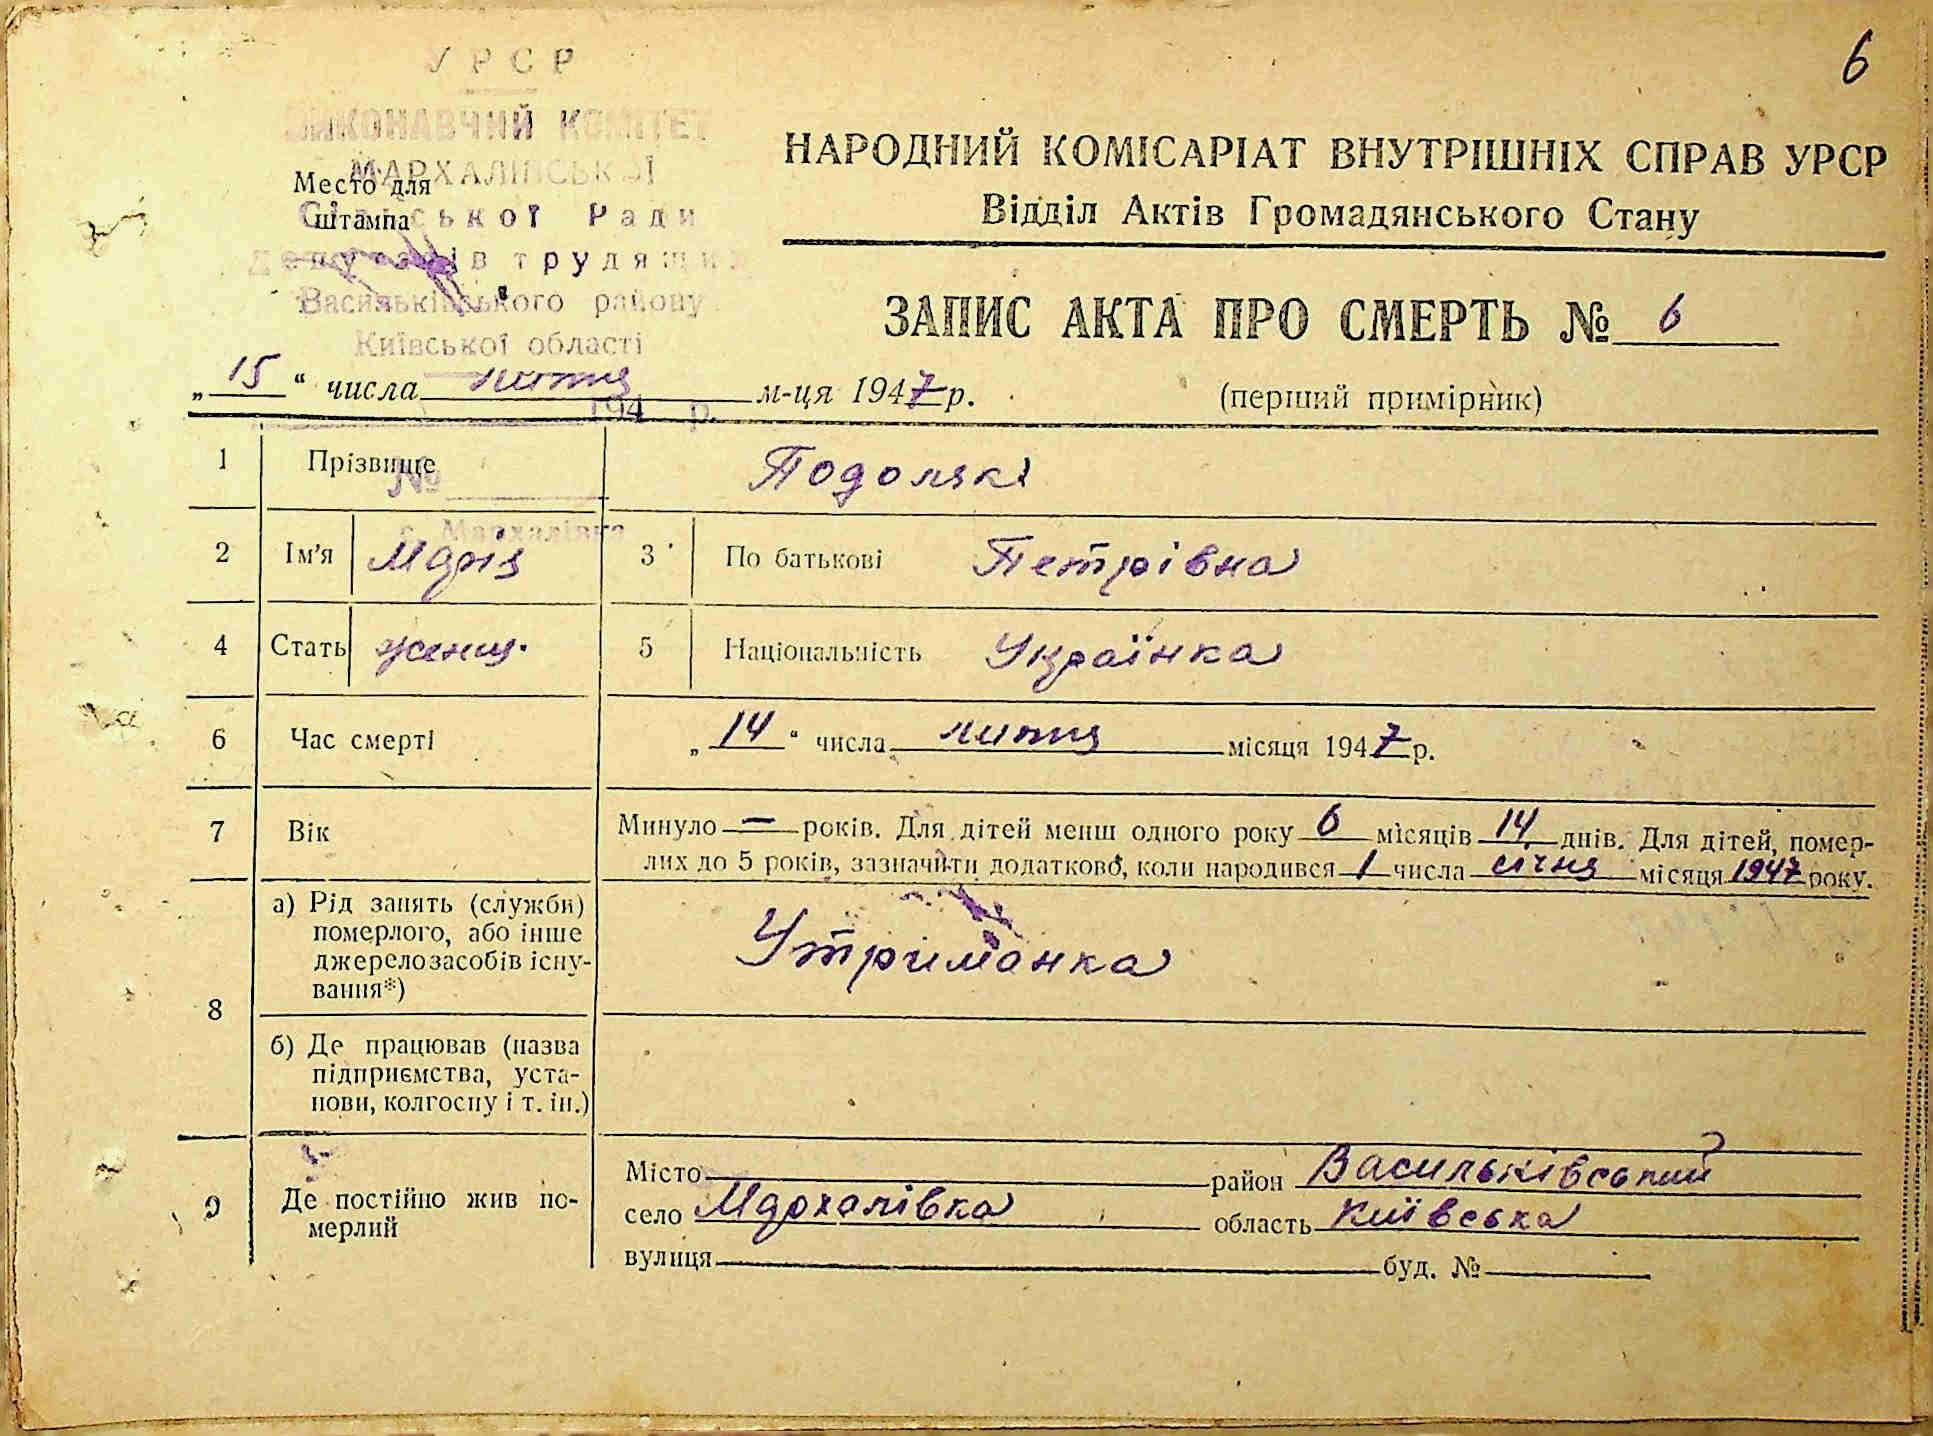 6
УРСР
ВИКОНАВЧИЙ КОМІТЕТ
МАРХАЛІВСЬКОЇ
Сільської Ради
депутатів трудящих
Васильківського району
Київської області
194 р.
№
с. Мархалівка
Место для
штампа
НАРОДНИЙ КОМІСАРІАТ ВНУТРІШНІХ СПРАВ УРСР
Відділ Актів Громадянського Стану
ЗАПИС АКТА ПРО СМЕРТЬ № 6
„15“ числа липня м-ця 1947 р. (перший примірник)
1 Прізвище Подоляк
2 Ім'я Марія 3 По батькові Петрівна
4 Стать женщ. 5 Національність Українка
6 Час смерті „14“ числа липня місяця 1947 р.
7 Вік Минуло — років. Для дітей менш одного року 6 місяців 14 днів. Для дітей, помер-
лих до 5 років, зазначити додатково, коли народився 1 числа січня місяця 1947 року.
8 а) Рід занять (служби)
померлого, або інше
джерело засобів існу-
вання*)
Утриманка
б) Де працював (назва
підприємства, уста-
нови, колгоспу і т. ін.)
9 Де постійно жив по-
мерлий
Місто район Васильківський
село Мархалівка область Київська
вулиця буд. №